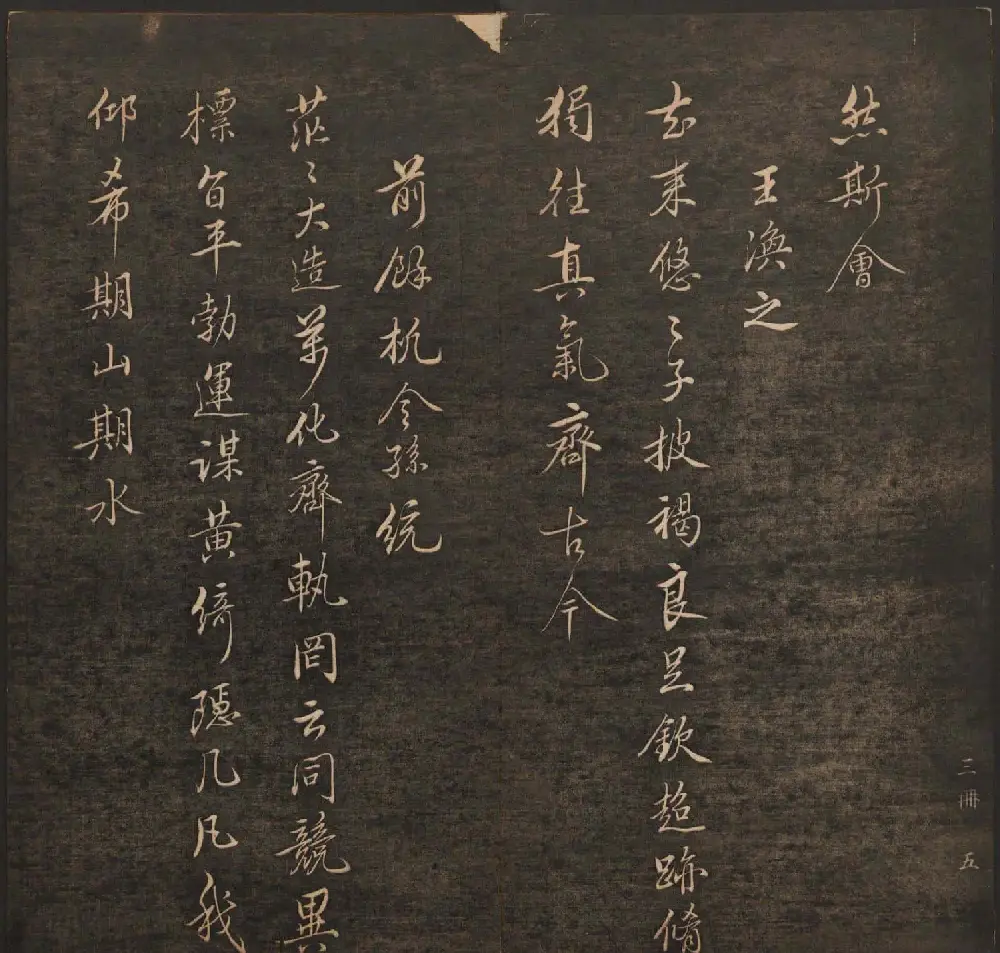 三冊 五
然斯會
王渙之
去来悠〻子披褐良足欽超跡脩
獨往真氣齊古今
前餘杭令孫統
茫〻大造萬化齊軌罔云同競異
標旨平勃運謀黄綺隱几凡我
仰希期山期水